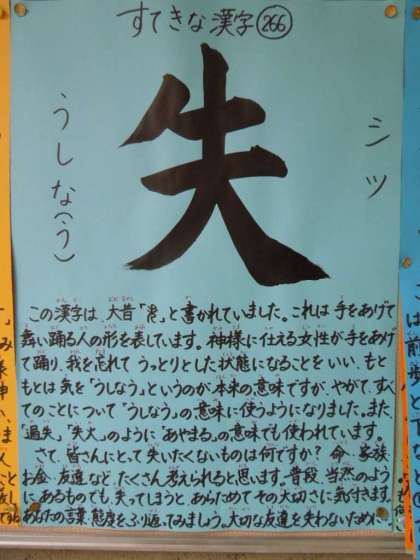 すてきな漢字 266
失
シツ
うしな(う)
この漢字は、大昔「」と書かれていました。これは手をあげて
舞い踊る人の形を表しています。神様に仕える女性が手をあげ
て踊り、我を忘れてうっとりとした状態になることをいい、もと
もとは気を「うしなう」というのが本来の意味ですが、やがて、すべ
てのことについて「うしなう」の意味に使うようになりました。また、
「過失」「失火」のように「あやまる」の意味でも使われています。
さて、皆さんにとって失いたくないものは何ですか？命、家族、
お金、友達など、たくさん考えられると思います。普段、当然のよう
にあるものでも、失ってしまうと、あらためてその大切さに気付きます。
あなたの言葉、態度をふり返ってみましょう。大切な友達を失わないために…